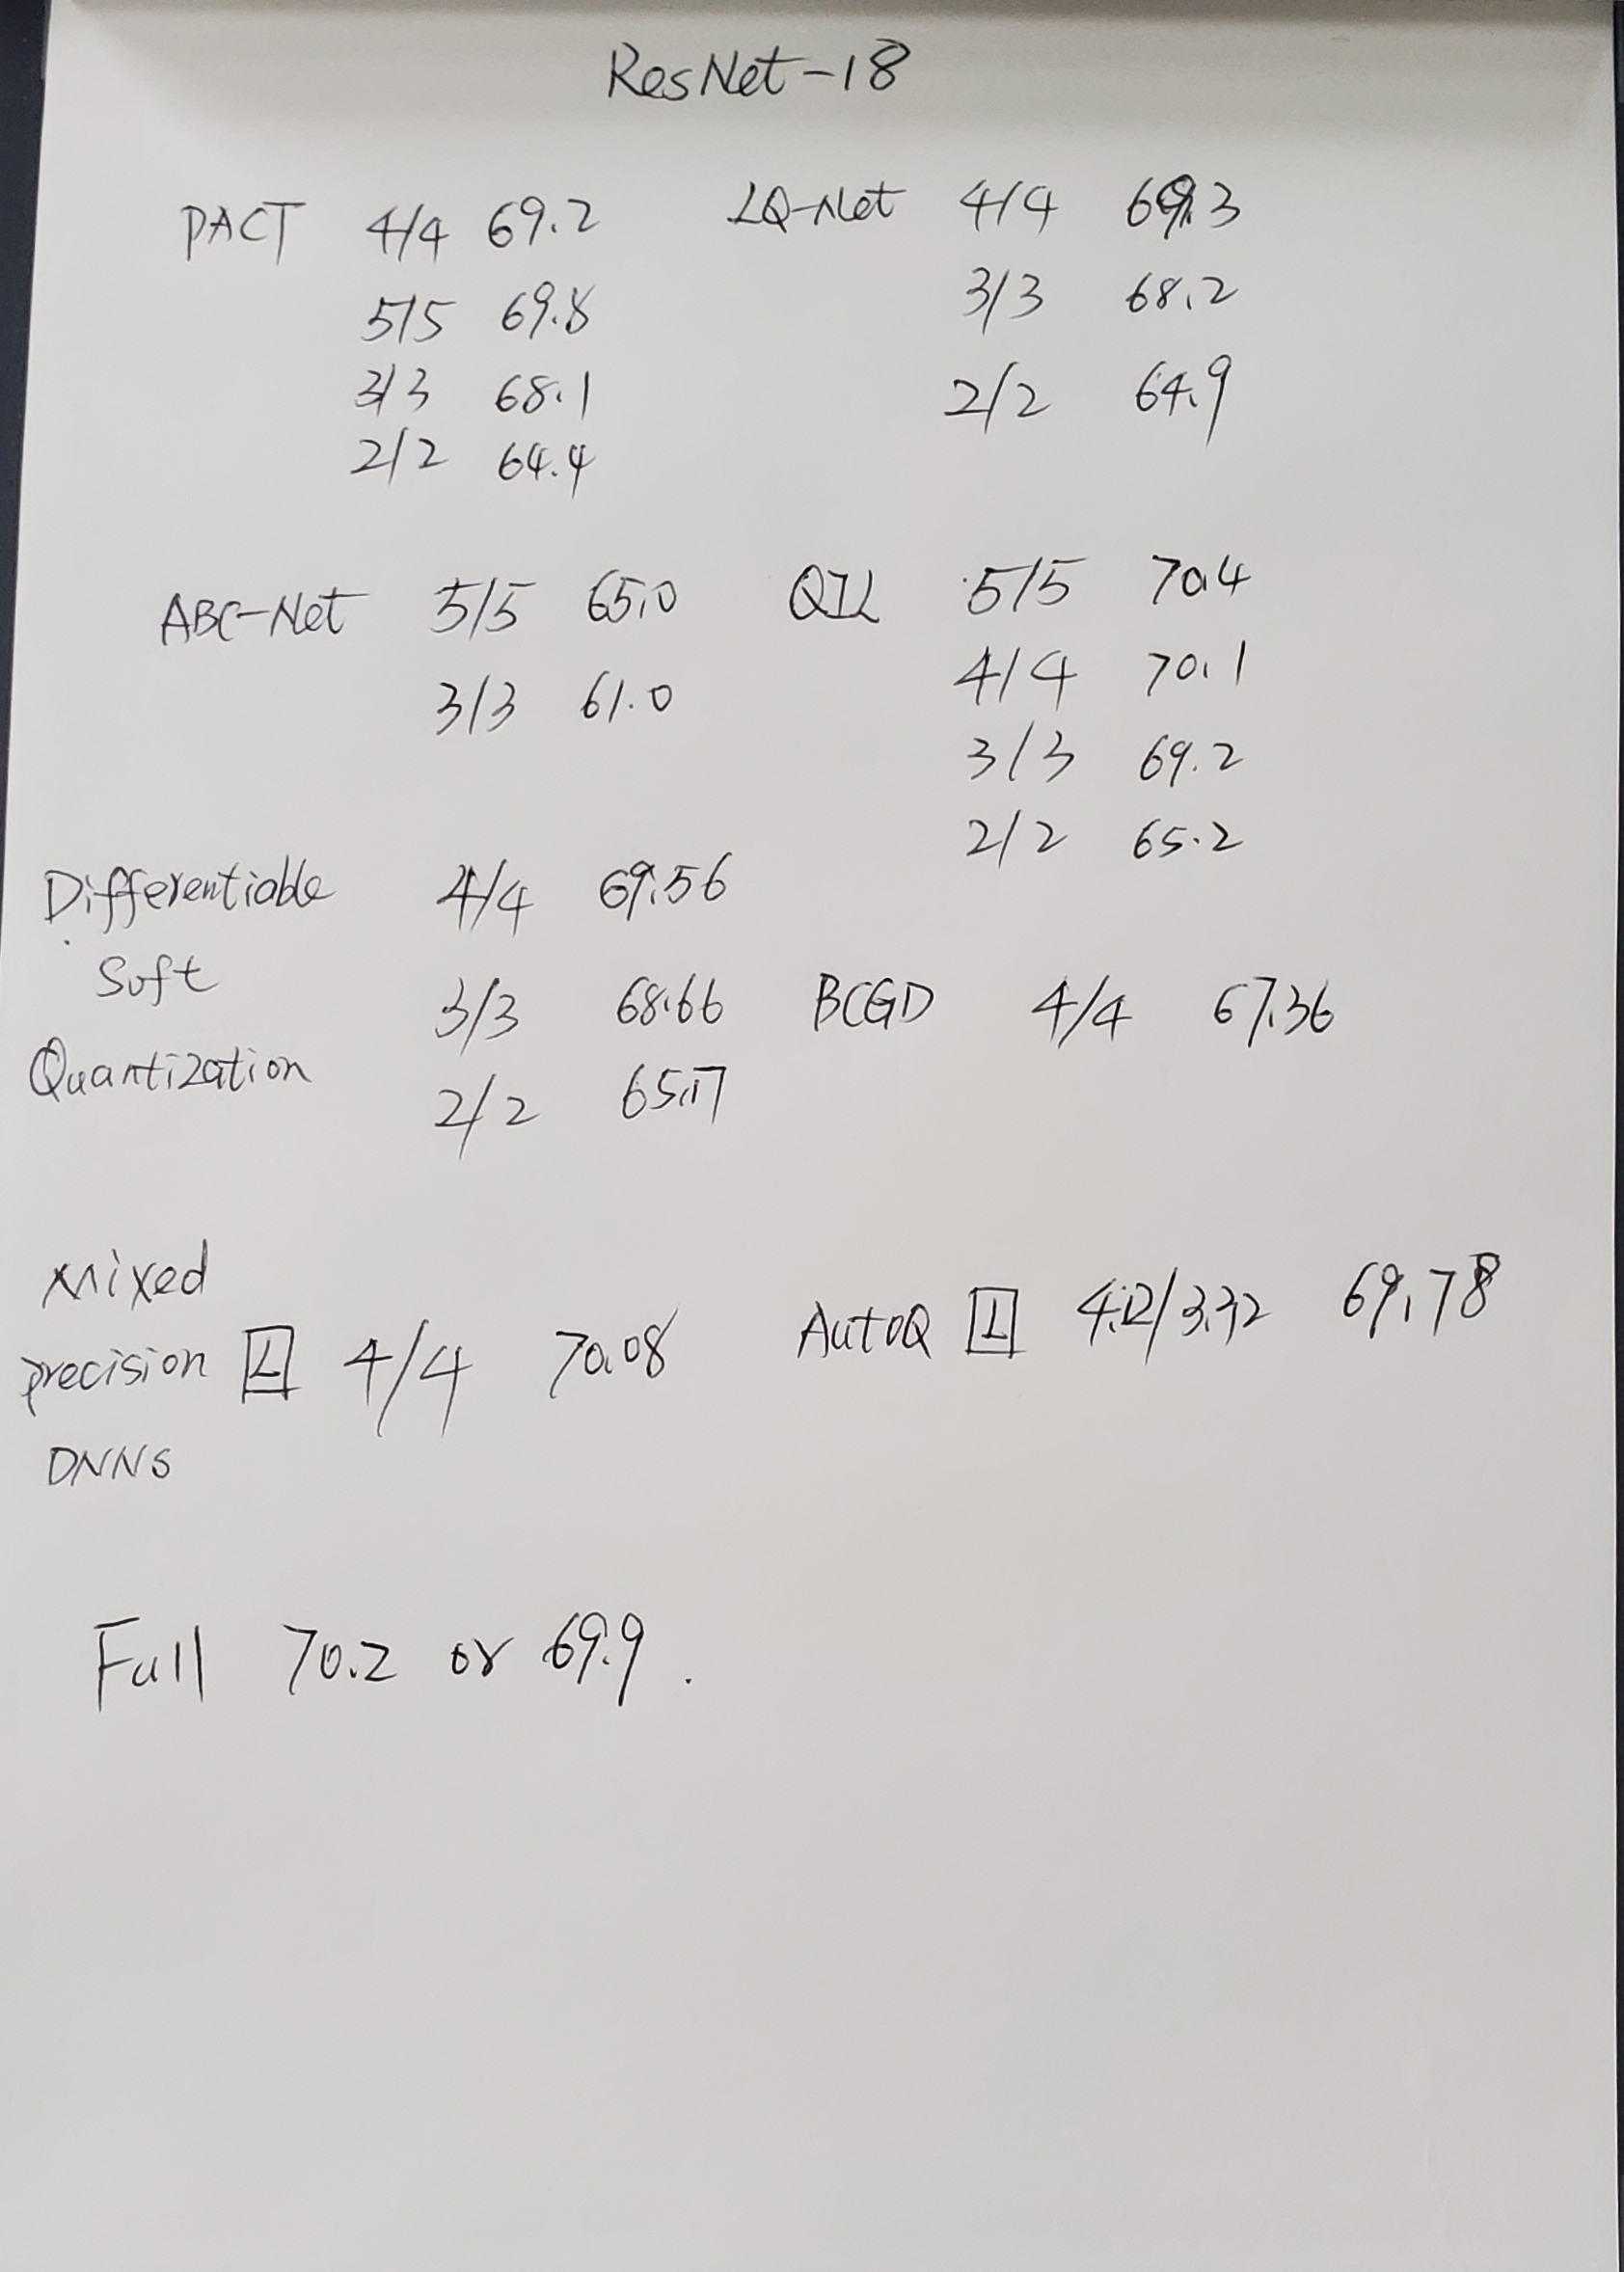 ResNet-18
PACT 4/4 69.2
5/5 69.8
3/3 68.1
2/2 64.4
LQ-Net 4/4 69.3
3/3 68.2
2/2 64.9
ABC-Net 5/5 65.0
3/3 61.0
QIL 5/5 70.4
4/4 70.1
3/3 69.2
2/2 65.2
Differentiable 4/4 69.56
Soft 3/3 68.66
Quantization 2/2 65.17
BCGD 4/4 67.36
mixed
precision L 4/4 70.08
DNNS
AutoQ L 69.78
Full 70.2 or 69.9.